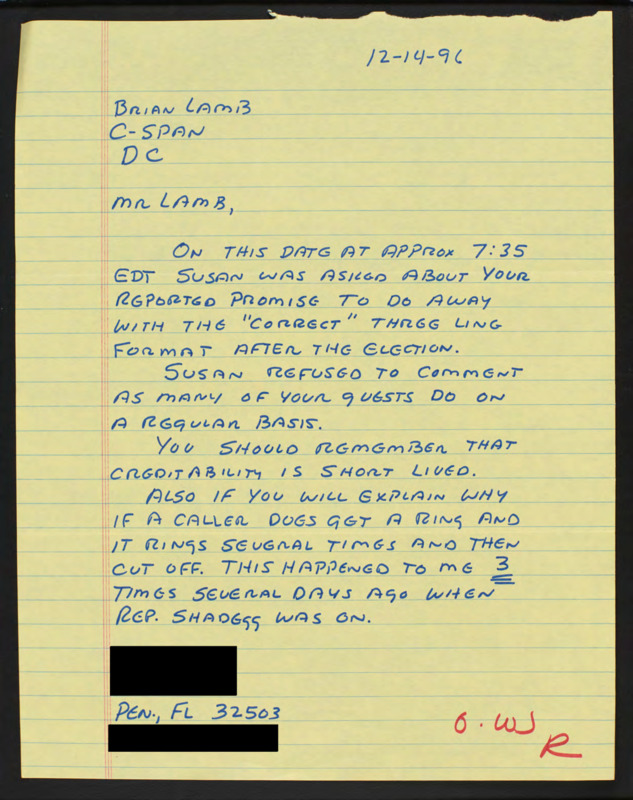 12-14-96
BRIAN LAMB
C-SPAN
DC
MR LAMB,
ON THIS DATE AT APPROX 7:35
EDT SUSAN WAS ASKED ABOUT YOUR
REPORTED PROMISE TO DO AWAY
WITH THE "CORRECT" THREE LING
FORMAT AFTER THE ELECTION.
SUSAN REFUSED TO COMMENT
AS MANY OF YOUR GUESTS DO ON
A REGULAR BASIS.
YOU SHOULD REMEMBER THAT
CREDITABILITY IS SHORT LIVED.
ALSO IF YOU WILL EXPLAIN WHY
IF A CALLER DOES GET A RING AND
IT RINGS SEVERAL TIMES AND THEN
CUT OFF. THIS HAPPENED TO ME 3
TIMES SEVERAL DAYS AGO WHEN
REP. SHADEGG WAS ON.
PEN., FL 32503
O.W
R